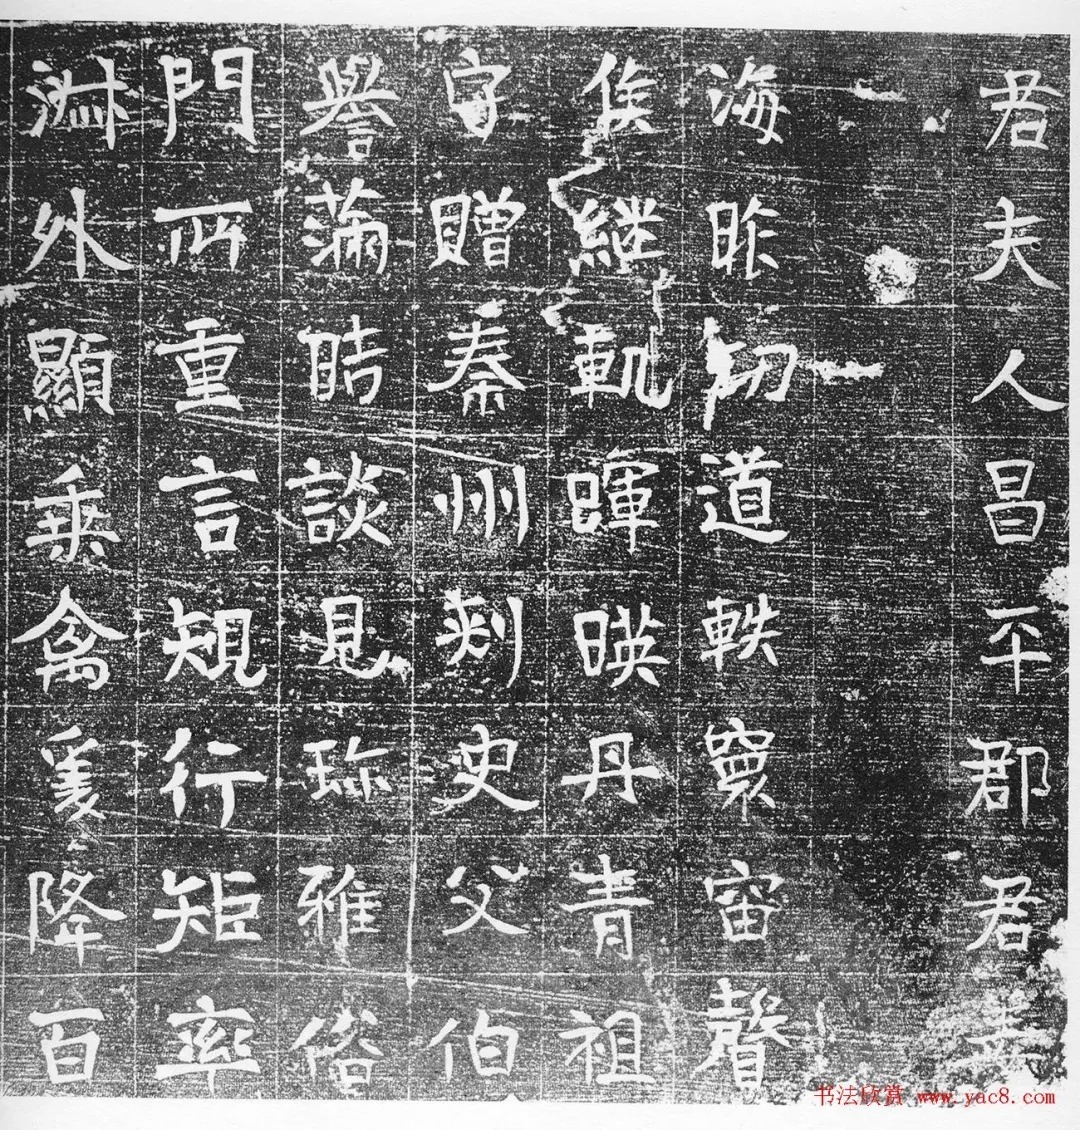 君夫人昌平郡君
海昨道軼寰宙聲
侯繼軌暉暎丹青祖
字贈秦州刺史父伯
譽滿晧談見珎雅俗
門所重言規行矩率
淵外顯乗禽爰降百
书法欣赏 www.yac8.com